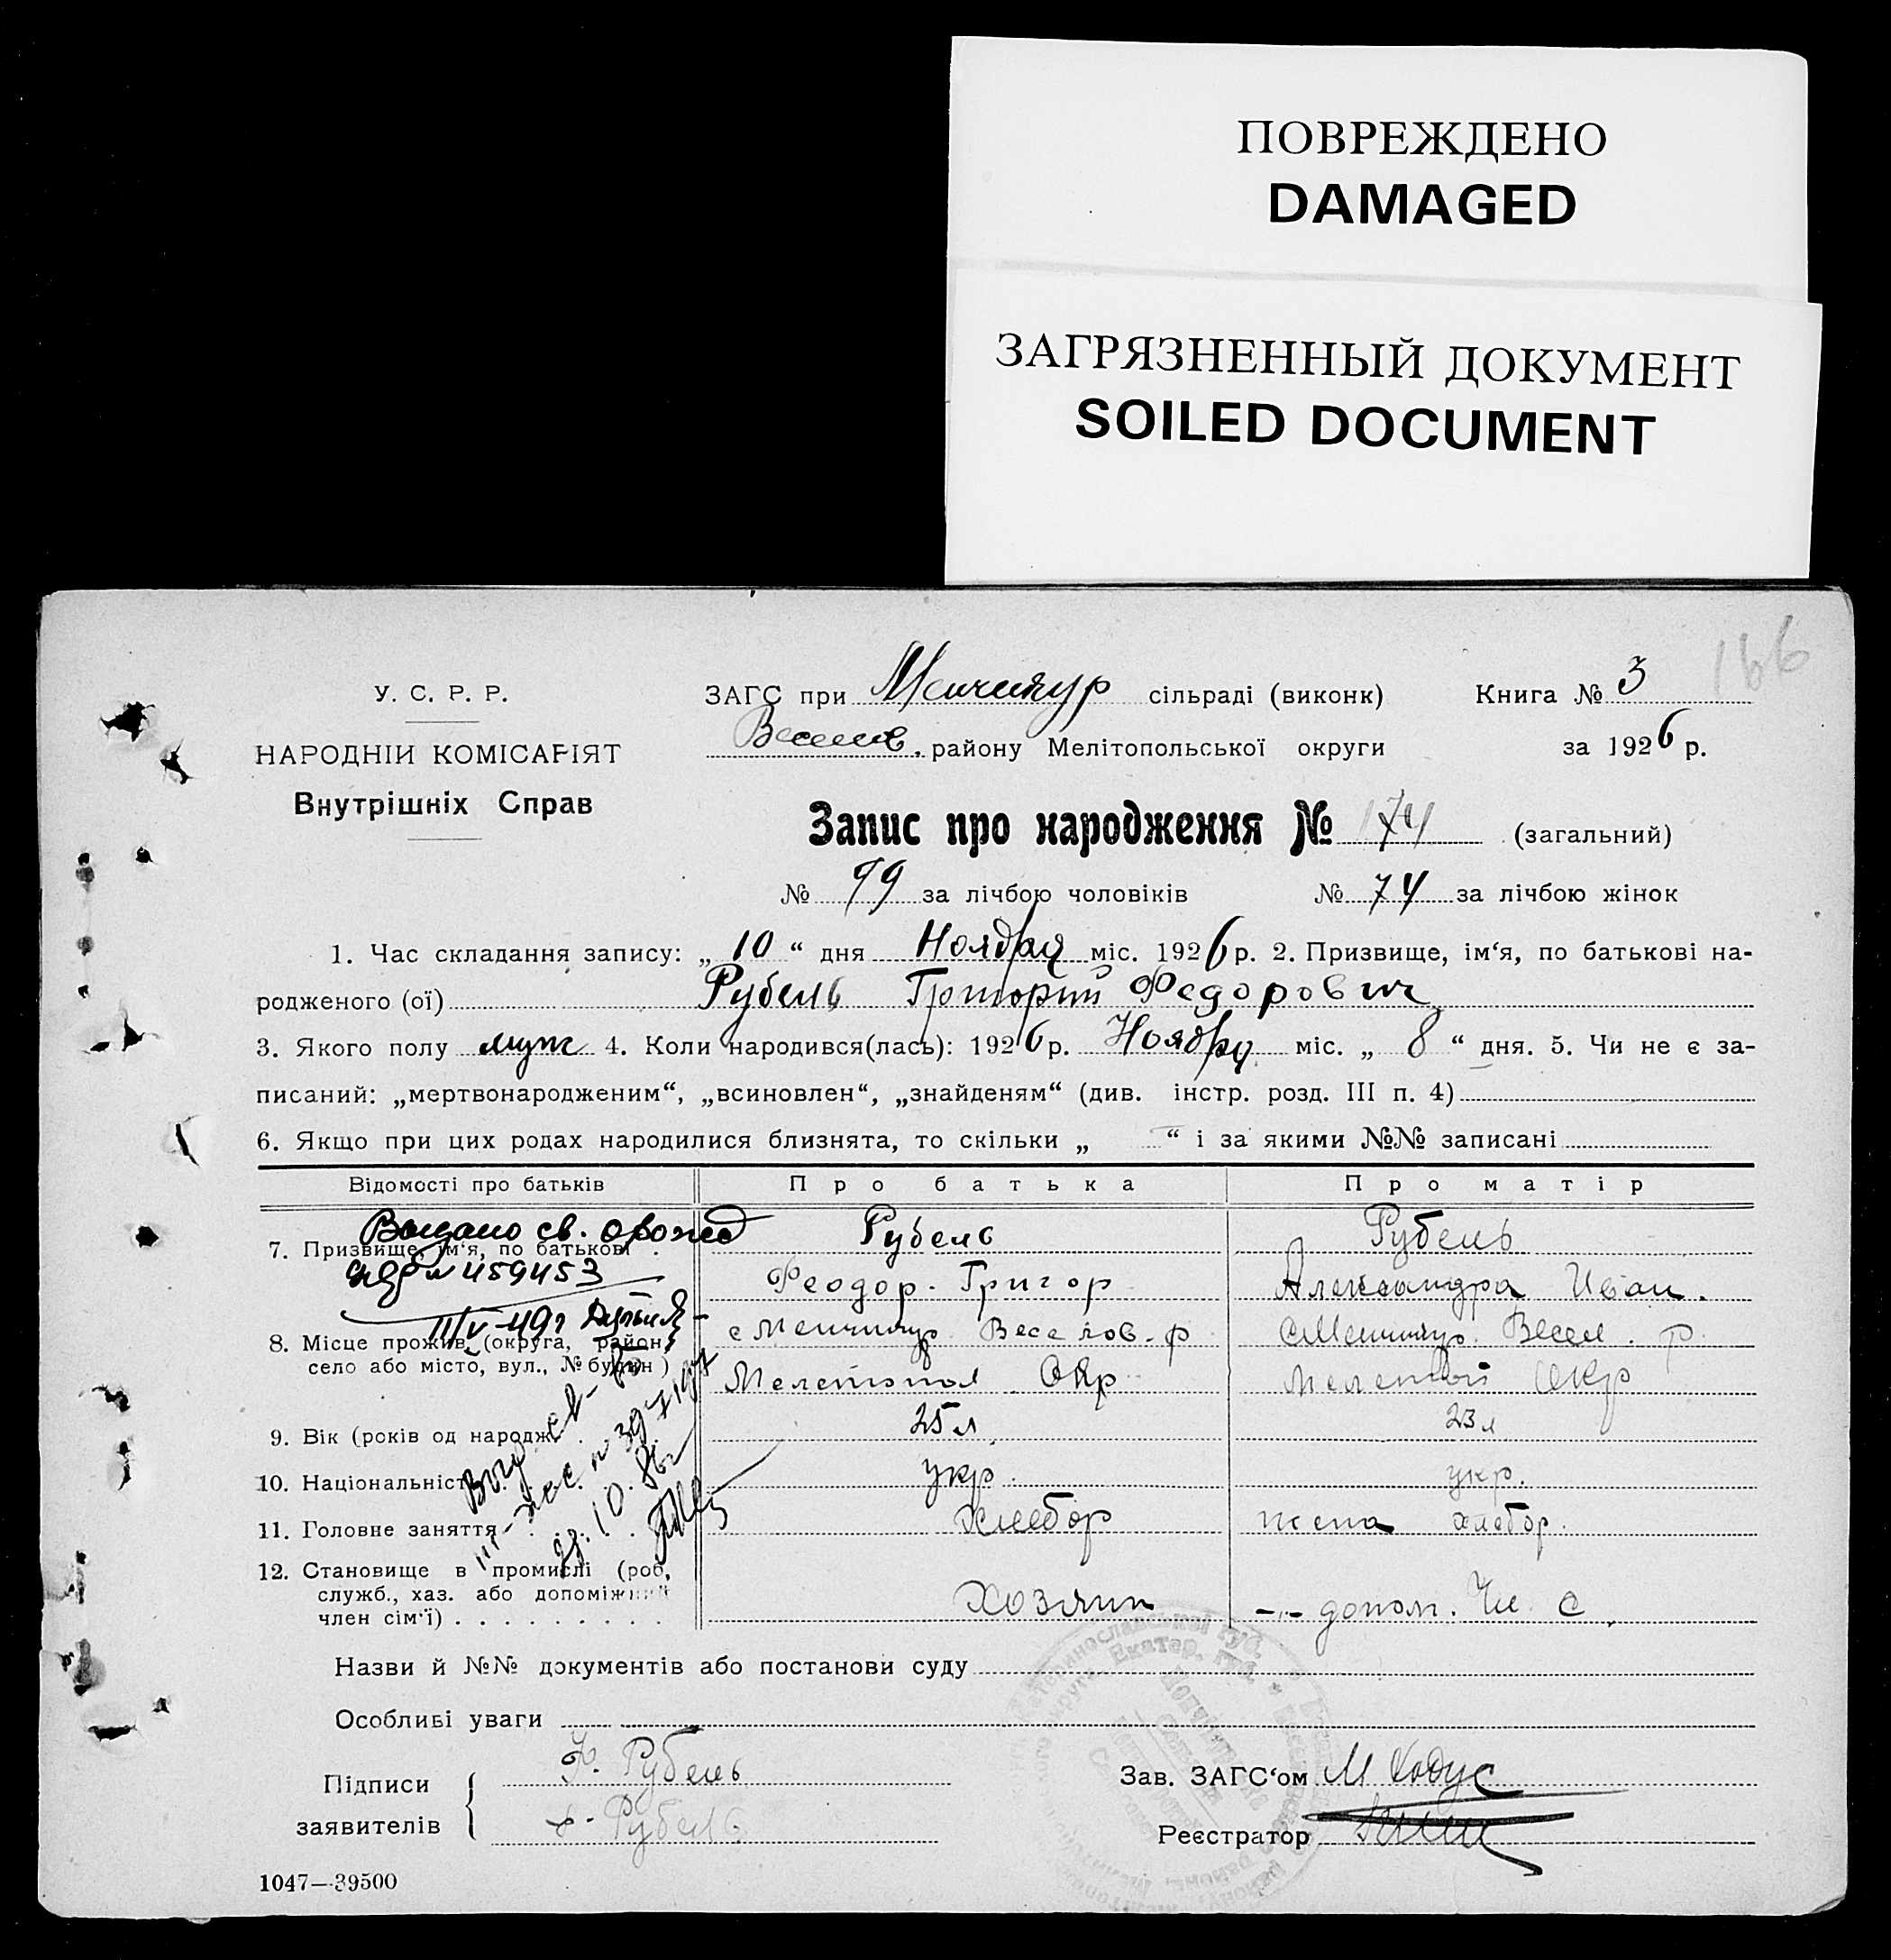 ПОВРЕЖДЕНО
DAMAGED
ЗАГРЯЗНЕННЫЙ ДОКУМЕНТ
SOILED DOCUMENT
166
У. С. Р. Р.
НАРОДНІЙ КОМІСАРІЯТ
Внутрішніх Справ
ЗАГС при Менчикур сільраді (виконк) Книга № 3
Веселов. району Мелітопольської округи за 1926 р.
Запис про народження № 174 (загальний)
№ 99 за лічбою чоловіків № 74 за лічбою жінок
1. Час складання запису: „ 10 “ дня Ноября міс. 1926 р. 2. Призвище, ім‘я, по батькові на-
родженого (ої) Рубель Григорий Федорович
3. Якого полу муж 4. Коли народився(лась): 1926 р. Ноября міс. „ 8 “ дня. 5. Чи не є за-
писаний: „мертвонародженим“, „всиновлен“, „знайденям“ (див. інстр. розд. III п. 4)
6. Якщо при цих родах народилися близнята, то скільки „ “ і за якими №№ записані
Відомості про батьків Про батька Про матір
Выдано св. о рожд
7. Призвище, ім‘я, по батькові Рубель Рубель
№ 459453
Феодор. Григор Александра Иван.
49г
8. Місце прожив. (округа, район, с Менчикур. Веселов. р с Менчикур. Весел. р.
село або місто, вул., № будин ) Мелетопол Окр Мелетоп Окр
9. Вік (років од народж. 25 л 23 л
10. Національність укр. укр.
11. Головне заняття Хлебор жена хлебор.
12. Становище в промислі (роб,
служб., хаз. або допоміжний
член сім‘ї) Хозяин -„- допом. Чл. С.
Выд. св-
10.86г
Назви й №№ документів або постанови суду
Особливі уваги
Підписи
заявителів
Ф. Рубель
Рубель
Зав. ЗАГС‘ом М Ходус
Реєстратор
1047—39500